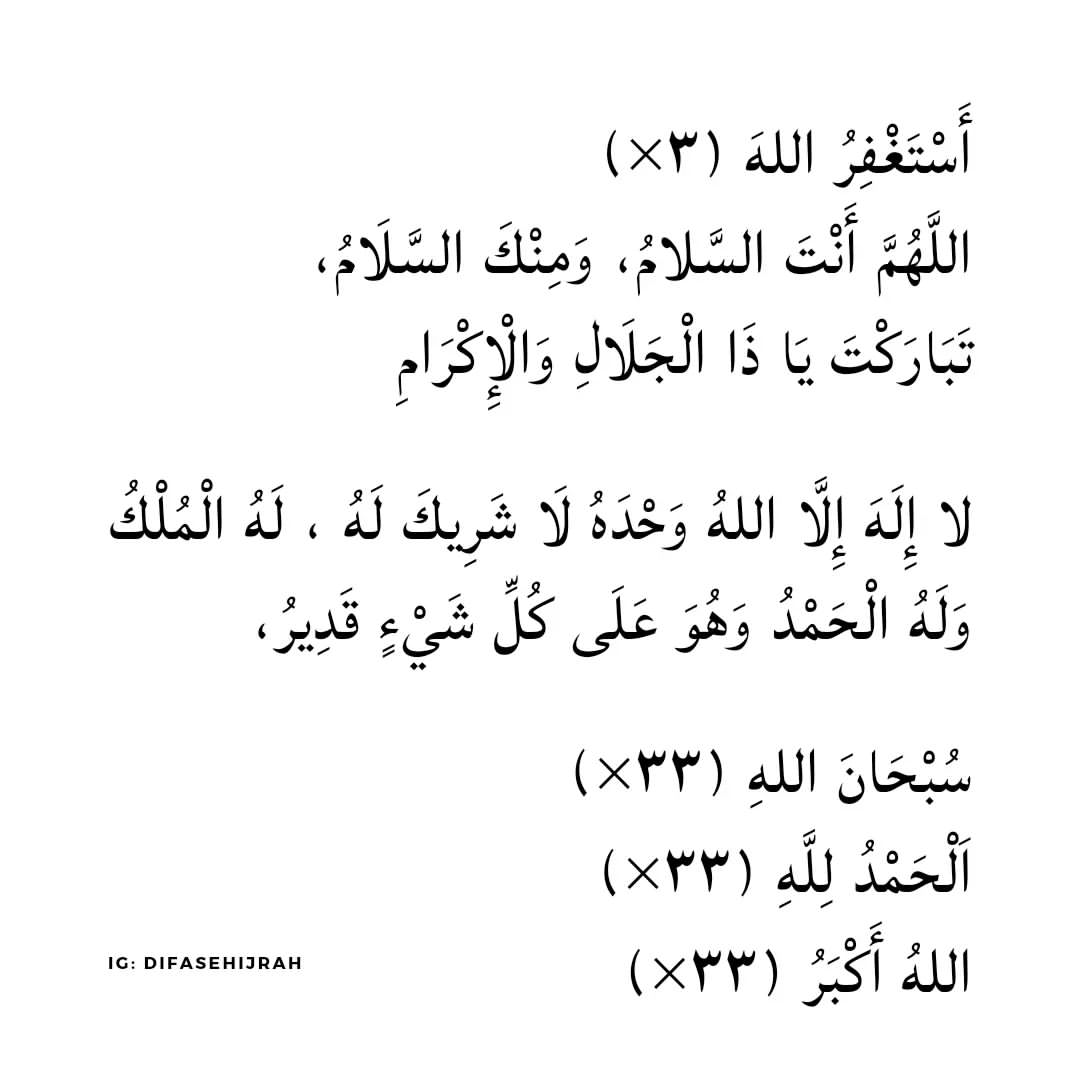 أَسْتَغْفِرُ اللهَ (٣×)
اللَّهُمَّ أَنْتَ السَّلامُ، وَمِنْكَ السَّلَامُ،
تَبَارَكْتَ يَا ذَا الْجَلَالِ وَالْإِكْرَامِ
لا إِلَهَ إِلَّا اللهُ وَحْدَهُ لَا شَرِيكَ لَهُ ، لَهُ الْمُلْكُ
وَلَهُ الْحَمْدُ وَهُوَ عَلَى كُلِّ شَيْءٍ قَدِيرُ،
سُبْحَانَ اللهِ (٣٣×)
اَلْحَمْدُ لِلَّهِ (٣٣×)
اللهُ أَكْبَرُ (٣٣×)
IG: DIFASEHIJRAH